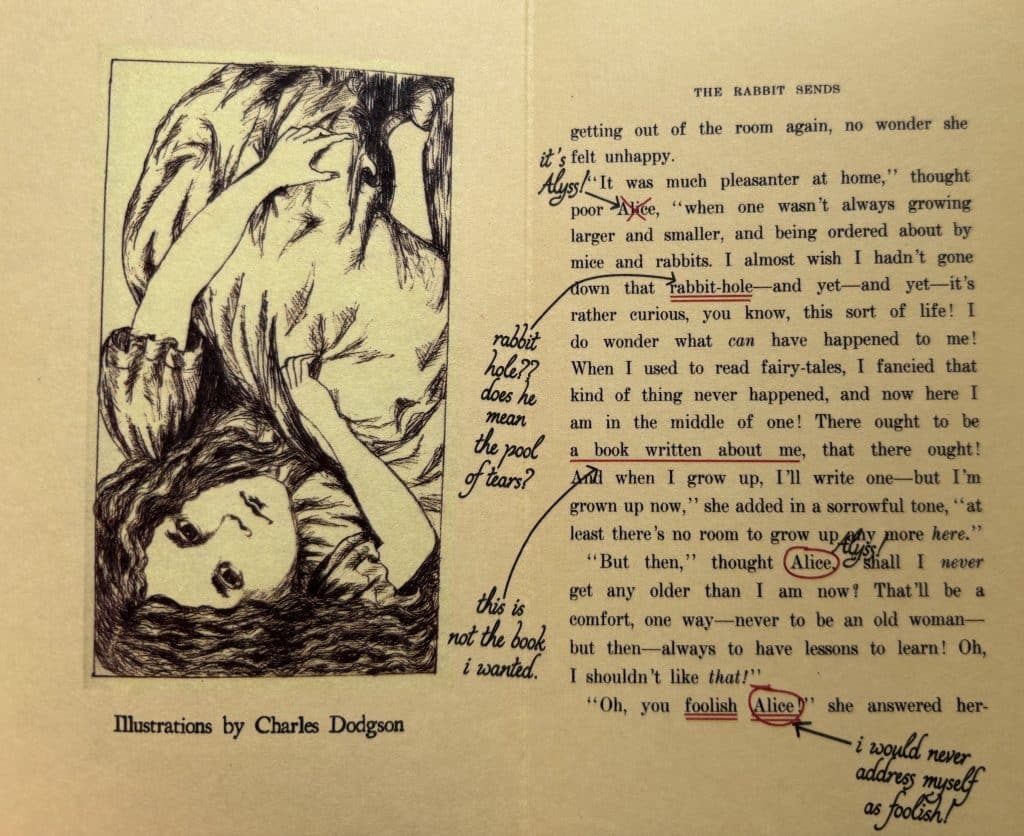 Illustrations by Charles Dodgson
THE RABBIT SENDS
getting out of the room again, no wonder she
felt unhappy.
"It was much pleasanter at home," thought
poor Alice, "when one wasn't always growing
larger and smaller, and being ordered about by
mice and rabbits. I almost wish I hadn't gone
down that rabbit-hole—and yet—and yet—it's
rather curious, you know, this sort of life! I
do wonder what can have happened to me!
When I used to read fairy-tales, I fancied that
kind of thing never happened, and now here I
am in the middle of one! There ought to be
a book written about me, that there ought!
And when I grow up, I'll write one—but I'm
grown up now," she added in a sorrowful tone, "at
least there's no room to grow up any more here."
"But then," thought Alice, shall I never
get any older than I am now? That'll be a
comfort, one way—never to be an old woman—
but then—always to have lessons to learn! Oh,
I shouldn't like that!"
"Oh, you foolish Alice!" she answered her-
it's
Alyss!
rabbit
hole??
does he
mean
the pool
of tears?
this is
not the book
i wanted.
Alyss!
i would never
address myself
as foolish!